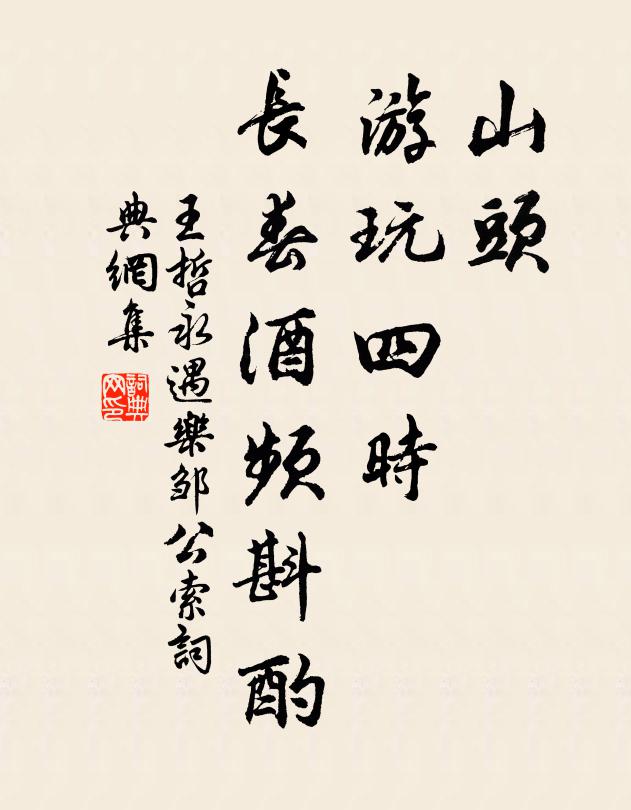 山頭
游玩四時
長春酒頻斟酌
王哲永遇樂鄒公索詞
典網集
詞典
网印